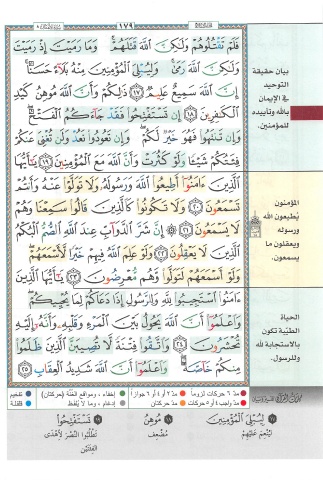 ١٧٩
فَلَمْ تَقْتُلُوهُمْ وَلَٰكِنَّ ٱللَّهَ قَتَلَهُمْ ۚ وَمَا رَمَيْتَ إِذْ رَمَيْتَ
وَلَٰكِنَّ ٱللَّهَ رَمَىٰ ۚ وَلِيُبْلِىَ ٱلْمُؤْمِنِينَ مِنْهُ بَلَآءً حَسَنًا ۚ
إِنَّ ٱللَّهَ سَمِيعٌ عَلِيمٌ ١٧ ذَٰلِكُمْ وَأَنَّ ٱللَّهَ مُوهِنُ كَيْدِ
ٱلْكَٰفِرِينَ ١٨ إِن تَسْتَفْتِحُوا۟ فَقَدْ جَآءَكُمُ ٱلْفَتْحُ ۖ
وَإِن تَنتَهُوا۟ فَهُوَ خَيْرٌ لَّكُمْ ۖ وَإِن تَعُودُوا۟ نَعُدْ وَلَن تُغْنِىَ عَنكُمْ
فِئَتُكُمْ شَيْـًٔا وَلَوْ كَثُرَتْ وَأَنَّ ٱللَّهَ مَعَ ٱلْمُؤْمِنِينَ ١٩ يَٰٓأَيُّهَا
ٱلَّذِينَ ءَامَنُوٓا۟ أَطِيعُوا۟ ٱللَّهَ وَرَسُولَهُۥ وَلَا تَوَلَّوْا۟ عَنْهُ وَأَنتُمْ
تَسْمَعُونَ ٢٠ وَلَا تَكُونُوا۟ كَٱلَّذِينَ قَالُوا۟ سَمِعْنَا وَهُمْ
لَا يَسْمَعُونَ ٢١ إِنَّ شَرَّ ٱلدَّوَآبِّ عِندَ ٱللَّهِ ٱلصُّمُّ ٱلْبُكْمُ
ٱلَّذِينَ لَا يَعْقِلُونَ ٢٢ وَلَوْ عَلِمَ ٱللَّهُ فِيهِمْ خَيْرًا لَّأَسْمَعَهُمْ ۖ
وَلَوْ أَسْمَعَهُمْ لَتَوَلَّوا۟ وَّهُم مُّعْرِضُونَ ٢٣ يَٰٓأَيُّهَا ٱلَّذِينَ
ءَامَنُوا۟ ٱسْتَجِيبُوا۟ لِلَّهِ وَلِلرَّسُولِ إِذَا دَعَاكُمْ لِمَا يُحْيِيكُمْ ۖ
وَٱعْلَمُوٓا۟ أَنَّ ٱللَّهَ يَحُولُ بَيْنَ ٱلْمَرْءِ وَقَلْبِهِۦ وَأَنَّهُۥٓ إِلَيْهِ
تُحْشَرُونَ ٢٤ وَٱتَّقُوا۟ فِتْنَةً لَّا تُصِيبَنَّ ٱلَّذِينَ ظَلَمُوا۟
مِنكُمْ خَآصَّةً ۖ وَٱعْلَمُوٓا۟ أَنَّ ٱللَّهَ شَدِيدُ ٱلْعِقَابِ ٢٥
بيان حقيقة
التوحيد
في الإيمان
بالله وتأييده
للمؤمنين.
المؤمنون
يطيعون الله
ورسوله
ويعقلون ما
يسمعون.
الحياة
الطيّبة تكون
بالاستجابة لله
وللرسول.
مدّ ٦ حركات لزوماً
مدّ ٢ أو ٤ أو ٦ جوازاً
إخفاء، ومواقع الغنّة (حركتان)
تفخيم
مدّ واجب ٤ أو ٥ حركات
مدّ حركتان
إدغام، وما لا يُلفظ
قلقلة
١٧ لِيُبْلِيَ الْمُؤْمِنِينَ
لِيُنْعِمَ عَلَيْهِمْ
١٨ مُوهِنُ
مُضْعِفُ
١٩ تَسْتَفْتِحُوا
تَطْلُبُوا النَّصْرَ لِأَهْدَى
الْفِئَتَيْنِ